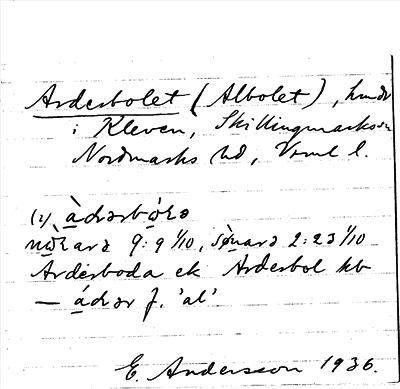 Arderbolet (Albolet), hmdr
i Kleven, Skillingmarks sn
Nordmarks hd, Verml l.
(i) àdərbo̢lə
nø̀ʀarə 9:9 1/10, sønarə 2:23 1/10
Arderboda ek Arderbol kb
— ádər f. 'al'
E. Andersson 1936.